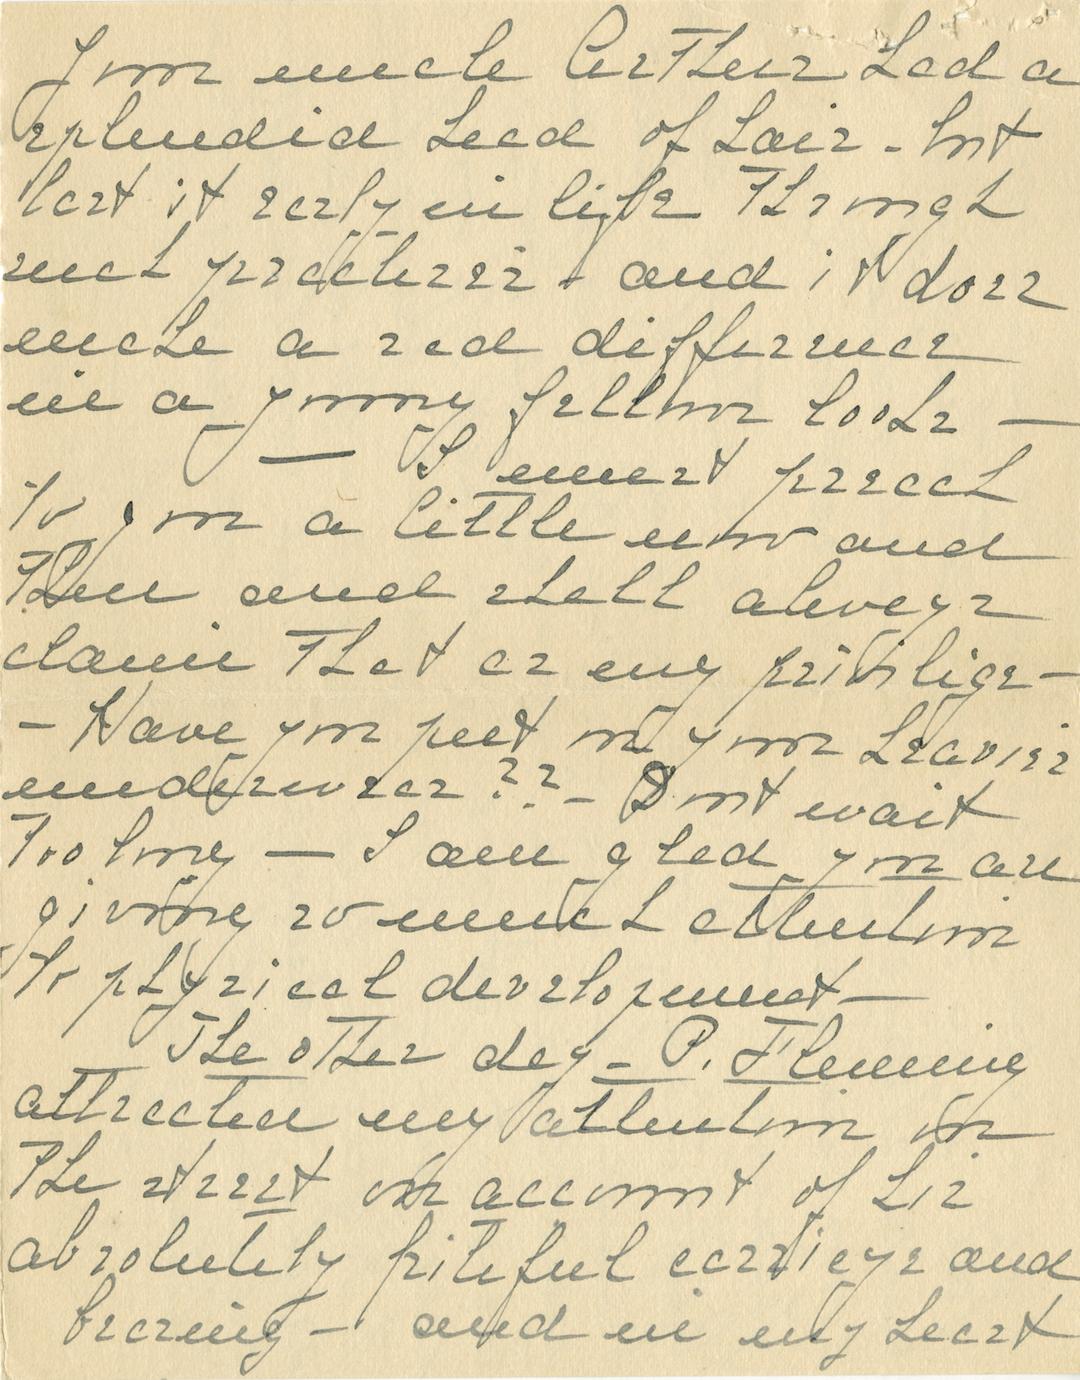 Your uncle Arthur had a
splendid head of hair - but
lost it early in life through
such practices - and it does
make a sad difference
in a young fellows looks -
- I must preach
to you a little now and
then and shall always
claim that as my privilige -
- Have you put on your heavier
underwear ?? - Dont wait
too long - I am glad you are
giving so much attention
to physical development -
The other day - P. Fleming
attracted my attention on
the street on account of his
absolutely pitiful carriage and
bearing - and in my heart